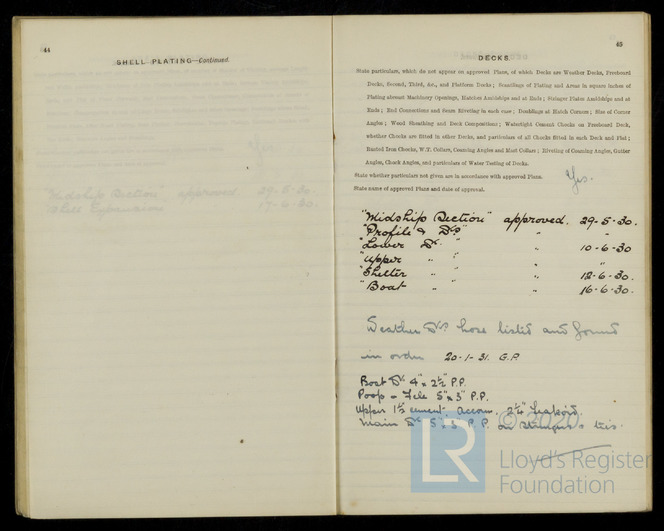 44
SHELL PLATING—Continued.
"Midship Section" approved. 29-5-30.
Shell Expansion 17-6-30.
45
DECKS
State particulars, which do not appear on approved Plans, of which Decks are Weather Decks, Freeboard
Decks, Second, Third, &c., and Platform Decks; Scantlings of Plating and Areas in square inches of
Plating abreast Machinery Openings, Hatches Amidships and at Ends; Stringer Plates Amidships and at
Ends; End Connections and Seam Riveting in each case; Doublings at Hatch Corners; Size of Corner
Angles; Wood Sheathing and Deck Compositions; Watertight Cement Chocks on Freeboard Deck,
whether Chocks are fitted in other Decks, and particulars of all Chocks fitted in each Deck and Flat;
Rusted Iron Chocks, W.T. Collars, Coaming Angles and Mast Collars; Riveting of Coaming Angles, Gutter
Angles, Chock Angles, and particulars of Water Testing of Decks.
State whether particulars not given are in accordance with approved Plans. Yes.
State name of approved Plans and date of approval.
"Midship Section" approved. 29-5-30.
"Profile & Dks" " "
"Lower Dk " " 10-6-30
"Upper " " " "
"Shelter " " " 12-6-30.
"Boat " " " 16-6-30.
Weather Dks hose tested and found
in order 20-1-31. G.P.
Boat Dk 4" x 2½" P.P.
Poop - Fcle 5" x 3" P.P.
Upper 1½" cement accom. 2¼"
Main Dk 5" x 3" P.P. on stringers & ties.
© 2020
LR
Lloyd's Register
Foundation